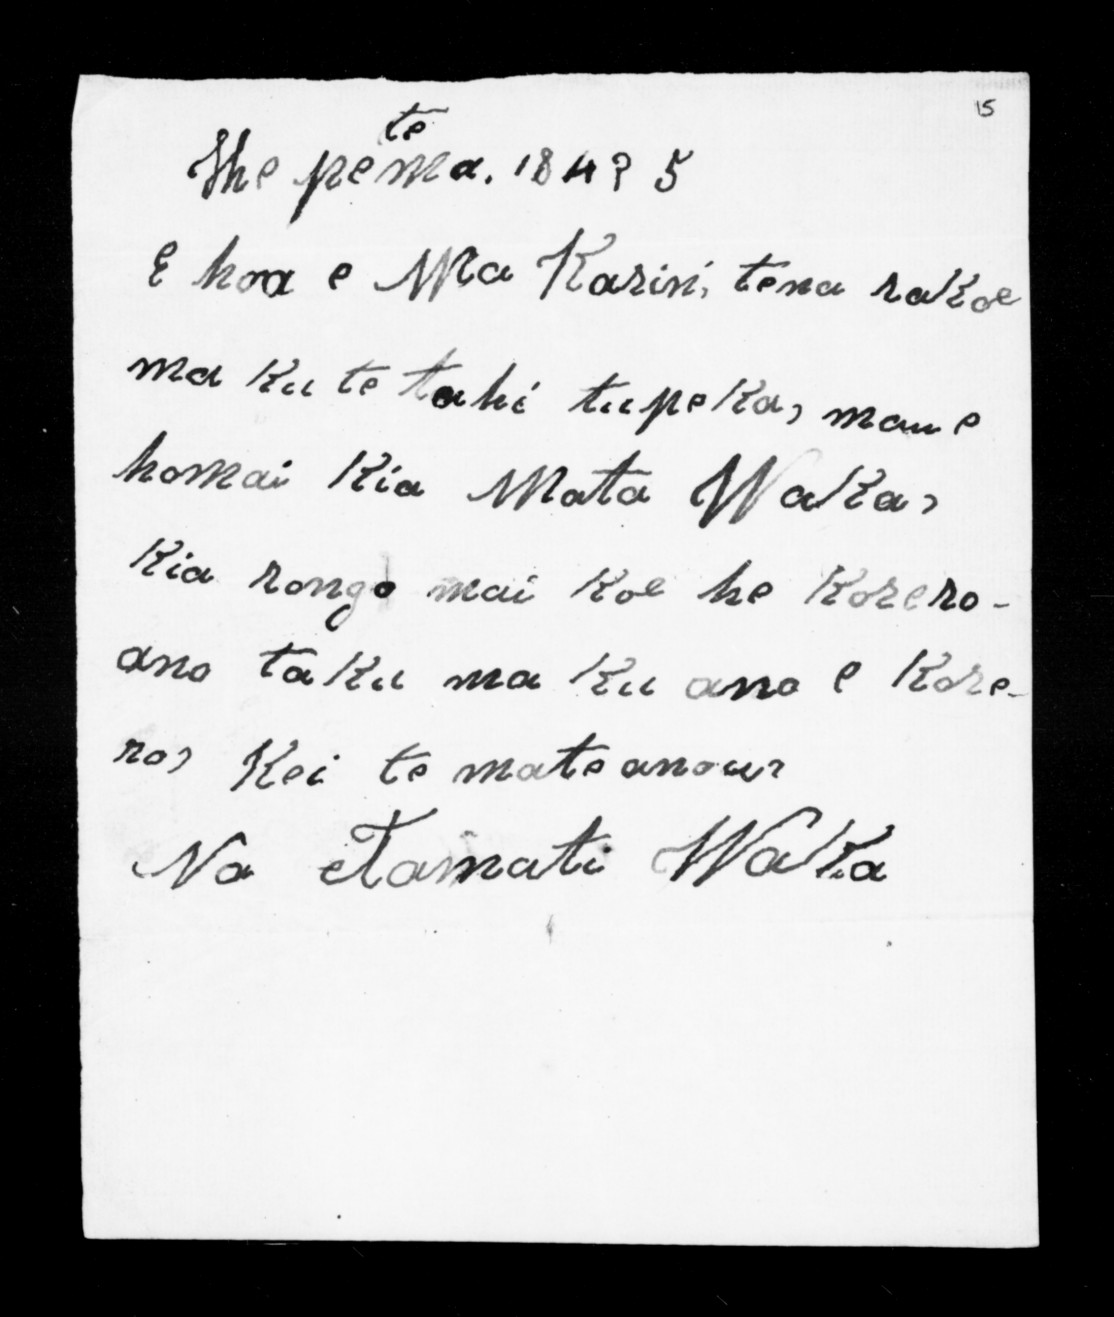 15
Hhe petema. 184? 5
E hoa e Ma Karini, tena rakoe
ma ku te tahi tupeka, mau e
homai kia Mata Waka,
Kia rongo mai koe he korero-
ano taku ma ku ano e kore-
ro, Kei te mate anau,
Na Tamati Waka